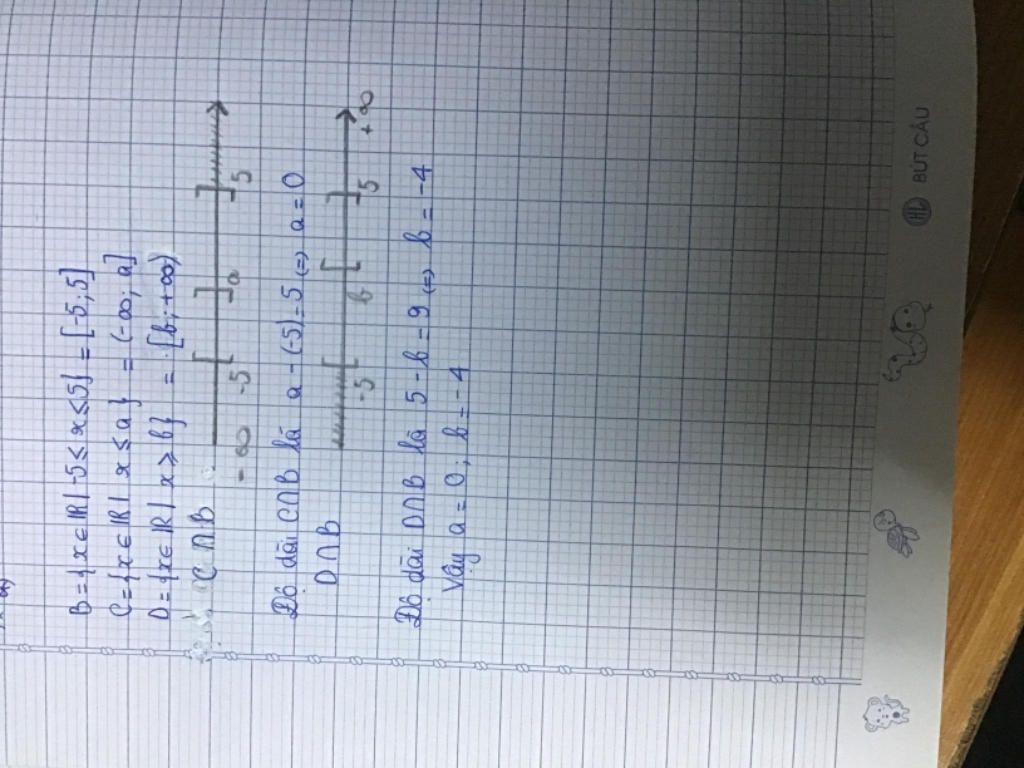 B = {x ∈ ℝ | -5 ≤ x ≤ 5} = [-5; 5]
C = {x ∈ ℝ | x ≤ a} = (-∞; a]
D = {x ∈ ℝ | x ≥ b} = [b; +∞)
C ∩ B
-∞ -5 a 5
Độ dài C∩B là a - (-5) = 5 (=) a = 0
D∩B
-5 b 5 +∞
Độ dài D∩B là 5 - b = 9 (=) b = -4
Vậy a = 0, b = -4
BÚT CÂU